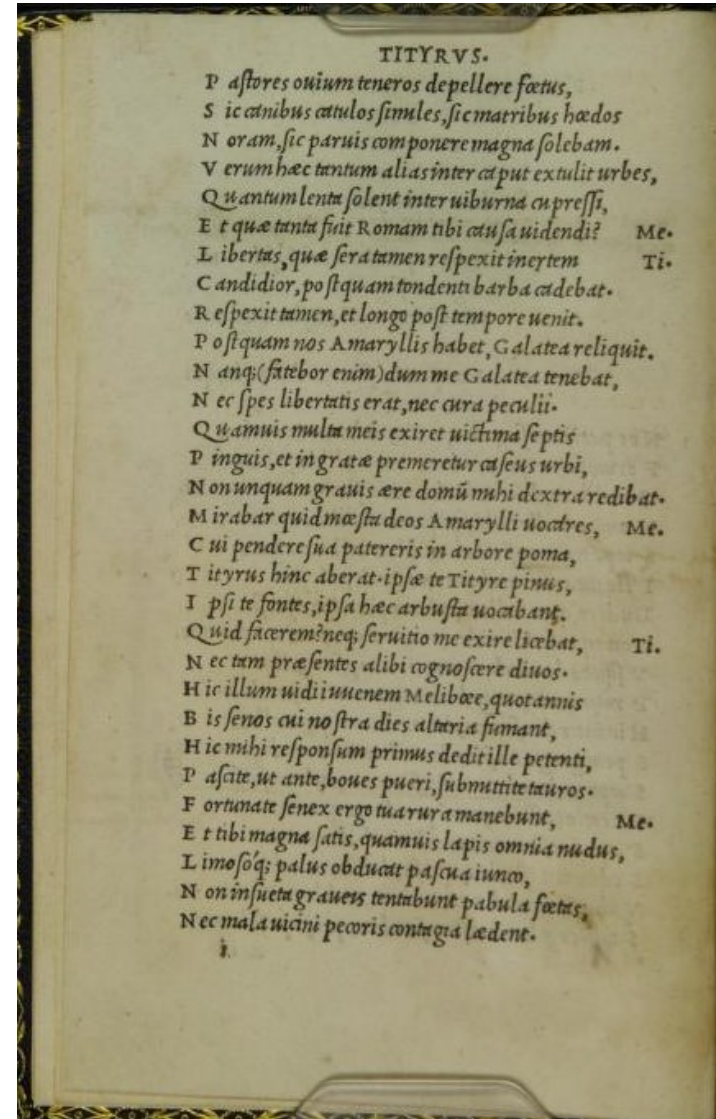 TITYRVS.
P astores ouium teneros depellere fœtus,
S ic canibus catulos similes, sic matribus hœdos
N oram, sic paruis componere magna solebam.
V erum hæc tantum alias inter caput extulit urbes,
Q uantum lenta solent inter uiburna cupressi,
E t quæ tanta fuit Romam tibi causa uidendi? Me.
L ibertas, quæ sera tamen respexit inertem Ti.
C andidior, postquam tondenti barba cadebat.
R espexit tamen, et longo post tempore uenit.
P ostquam nos Amaryllis habet, Galatea reliquit.
N anq; (fatebor enim) dum me Galatea tenebat,
N ec spes libertatis erat, nec cura peculii.
Q uamuis multa meis exiret uictima septis
P inguis, et ingratæ premeretur caseus urbi,
N on unquam grauis ære domū mihi dextra redibat.
M irabar quid mœsta deos Amarylli uocares, Me.
C ui pendere sua patereris in arbore poma,
T ityrus hinc aberat. ipsæ te Tityre pinus,
I psi te fontes, ipsa hæc arbusta uocabant.
Q uid facerem? neq; seruitio me exire licebat, Ti.
N ec tam præsentes alibi cognoscere diuos.
H ic illum uidi iuuenem Melibœe, quotannis
B is senos cui nostra dies altaria fumant,
H ic mihi responsum primus dedit ille petenti,
P ascite, ut ante, boues pueri, submittite tauros.
F ortunate senex ergo tua rura manebunt, Me.
E t tibi magna satis, quamuis lapis omnia nudus,
L imosóq; palus obducat pascua iunco,
N on insueta graueis tentabunt pabula fœtas,
N ec mala uicini pecoris contagia lædent.